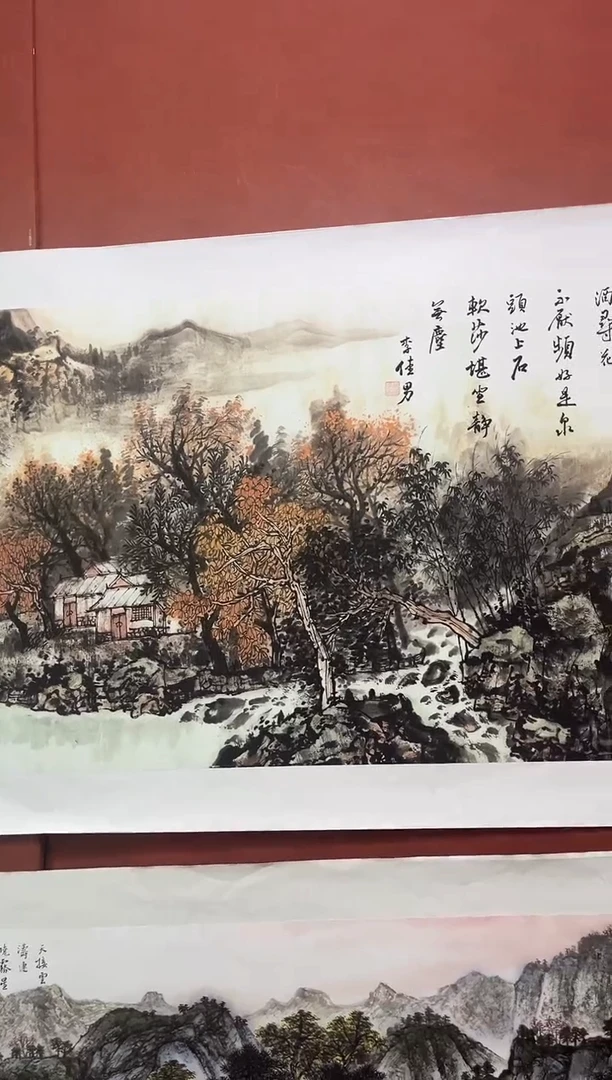 酒尋花
不厭頻好是泉
頭池上石
軟莎堪坐靜
無塵
李佳男
天接雲
濤連
曉霧星